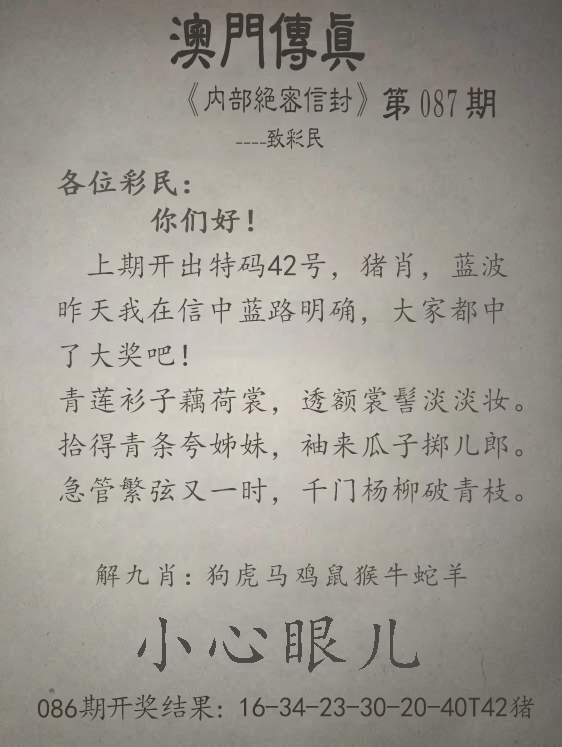 澳門傳眞
《内部絕密信封》第087期
----致彩民
各位彩民：
你们好！
上期开出特码42号，猪肖，蓝波
昨天我在信中蓝路明确，大家都中
了大奖吧！
青莲衫子藕荷裳，透额裳髻淡淡妆。
拾得青条夸姊妹，袖来瓜子掷儿郎。
急管繁弦又一时，千门杨柳破青枝。
解九肖：狗虎马鸡鼠猴牛蛇羊
小心眼儿
086期开奖结果：16-34-23-30-20-40T42猪